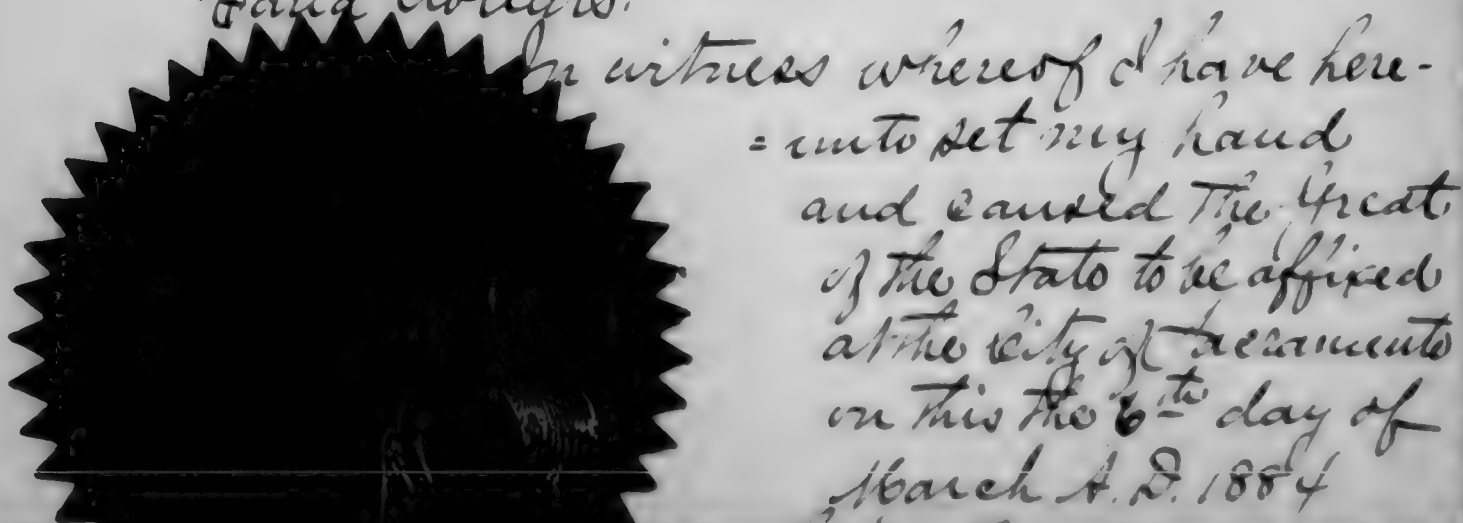 sand dollars.
In witness whereof I have here-
=unto set my hand
and caused The Great
of the State to be affixed
at the City of Sacramento
on this the 6th day of
March A.D. 1884